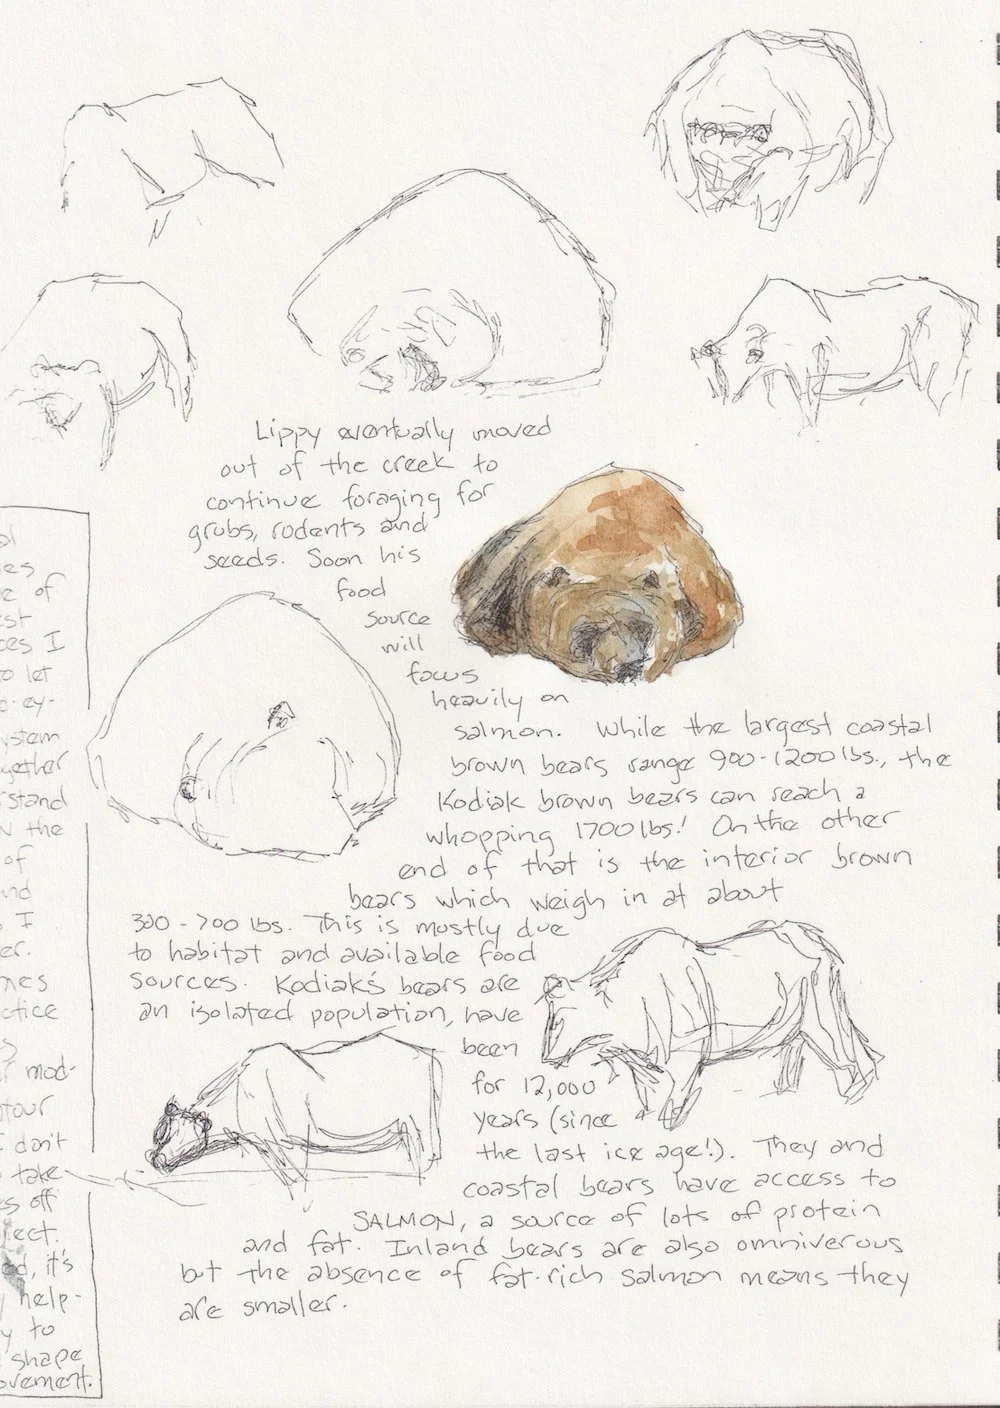 Lippy eventually moved
out of the creek to
continue foraging for
grubs, rodents and
seeds. Soon his
food
source
will
focus
heavily on
salmon. While the largest coastal
brown bears range 900-1200 lbs., the
Kodiak brown bears can reach a
whopping 1700 lbs.! On the other
end of that is the interior brown
bears which weigh in at about
300-700 lbs. This is mostly due
to habitat and available food
sources. Kodiak's bears are
an isolated population, have
been
for 12,000
years (since
the last ice age!). They and
coastal bears have access to
SALMON, a source of lots of protein
and fat. Inland bears are also omniverous
but the absence of fat-rich salmon means they
are smaller.
of
I
let
the
of
I
practice
mod-
don't
take
off
it's
help-
to
shape